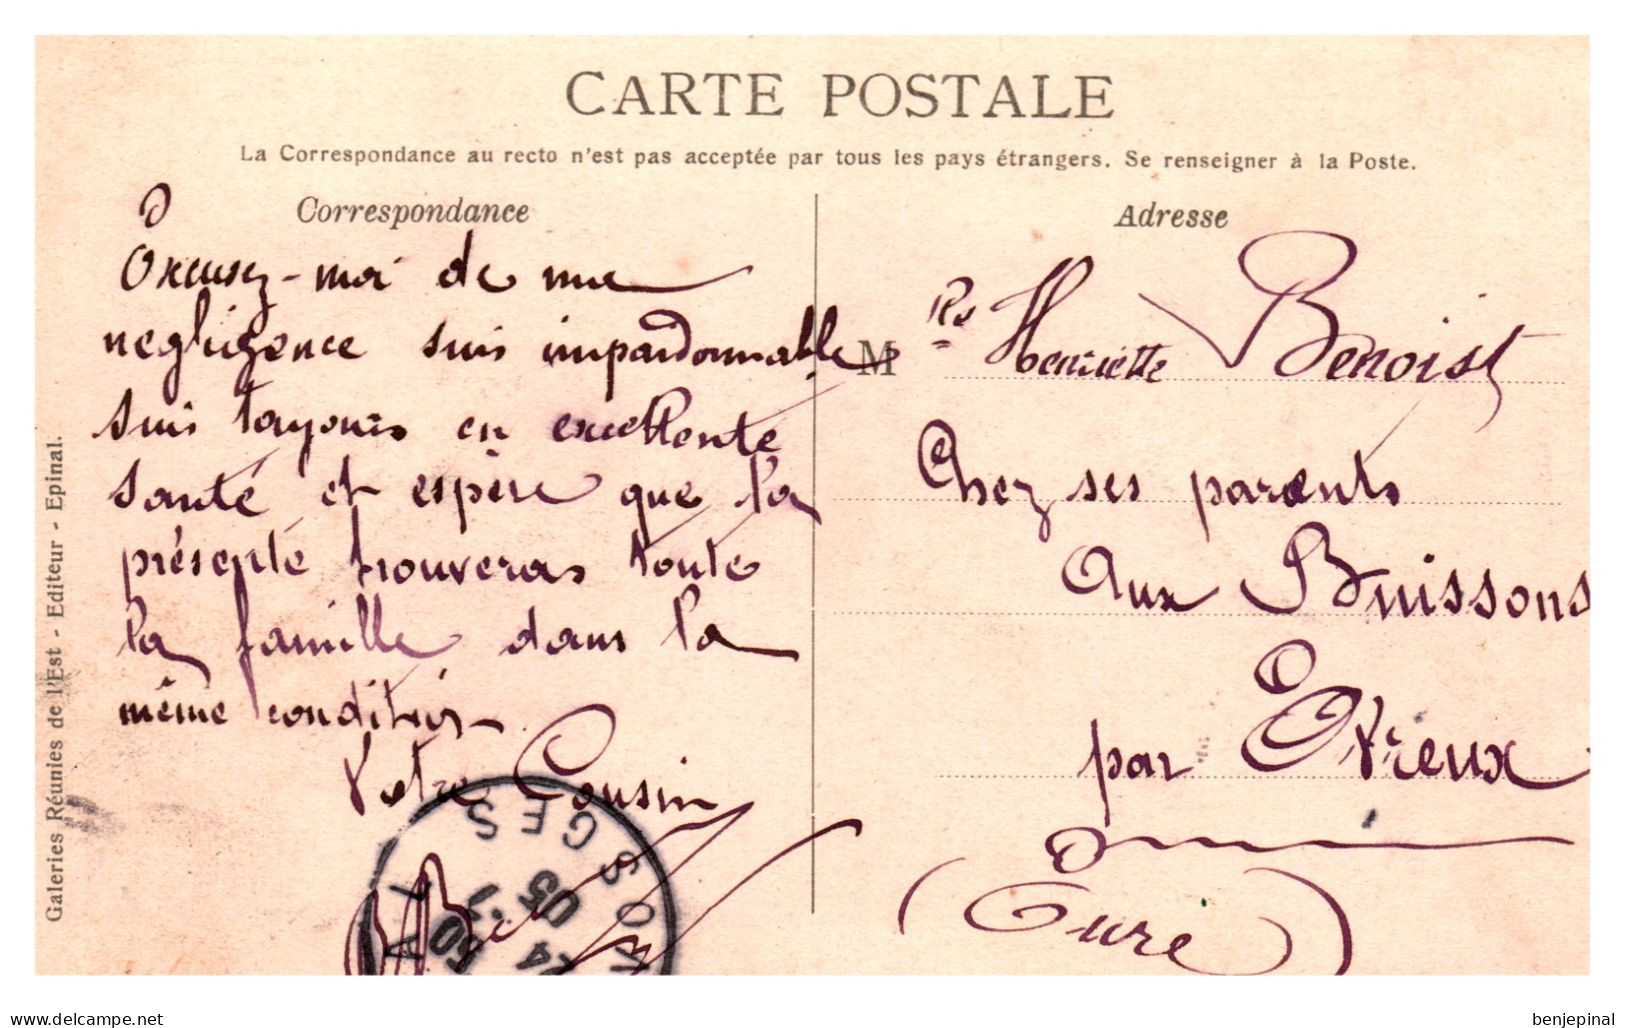 CARTE POSTALE
La Correspondance au recto n'est pas acceptée par tous les pays étrangers. Se renseigner à la Poste.
Correspondance
Excusez-moi de me
negligence suis impardonnable
suis toujours en excellente
santé et espère que la
présente trouveras toute
la famille dans la
même condition
Votre Cousin
Adresse
M Henriette Benoist
Chez ses parents
Aux Buissons
par Evreux
(Eure)
Galeries Réunies de l'Est - Editeur - Epinal.
VOSGES
www.delcampe.net
benjepinal